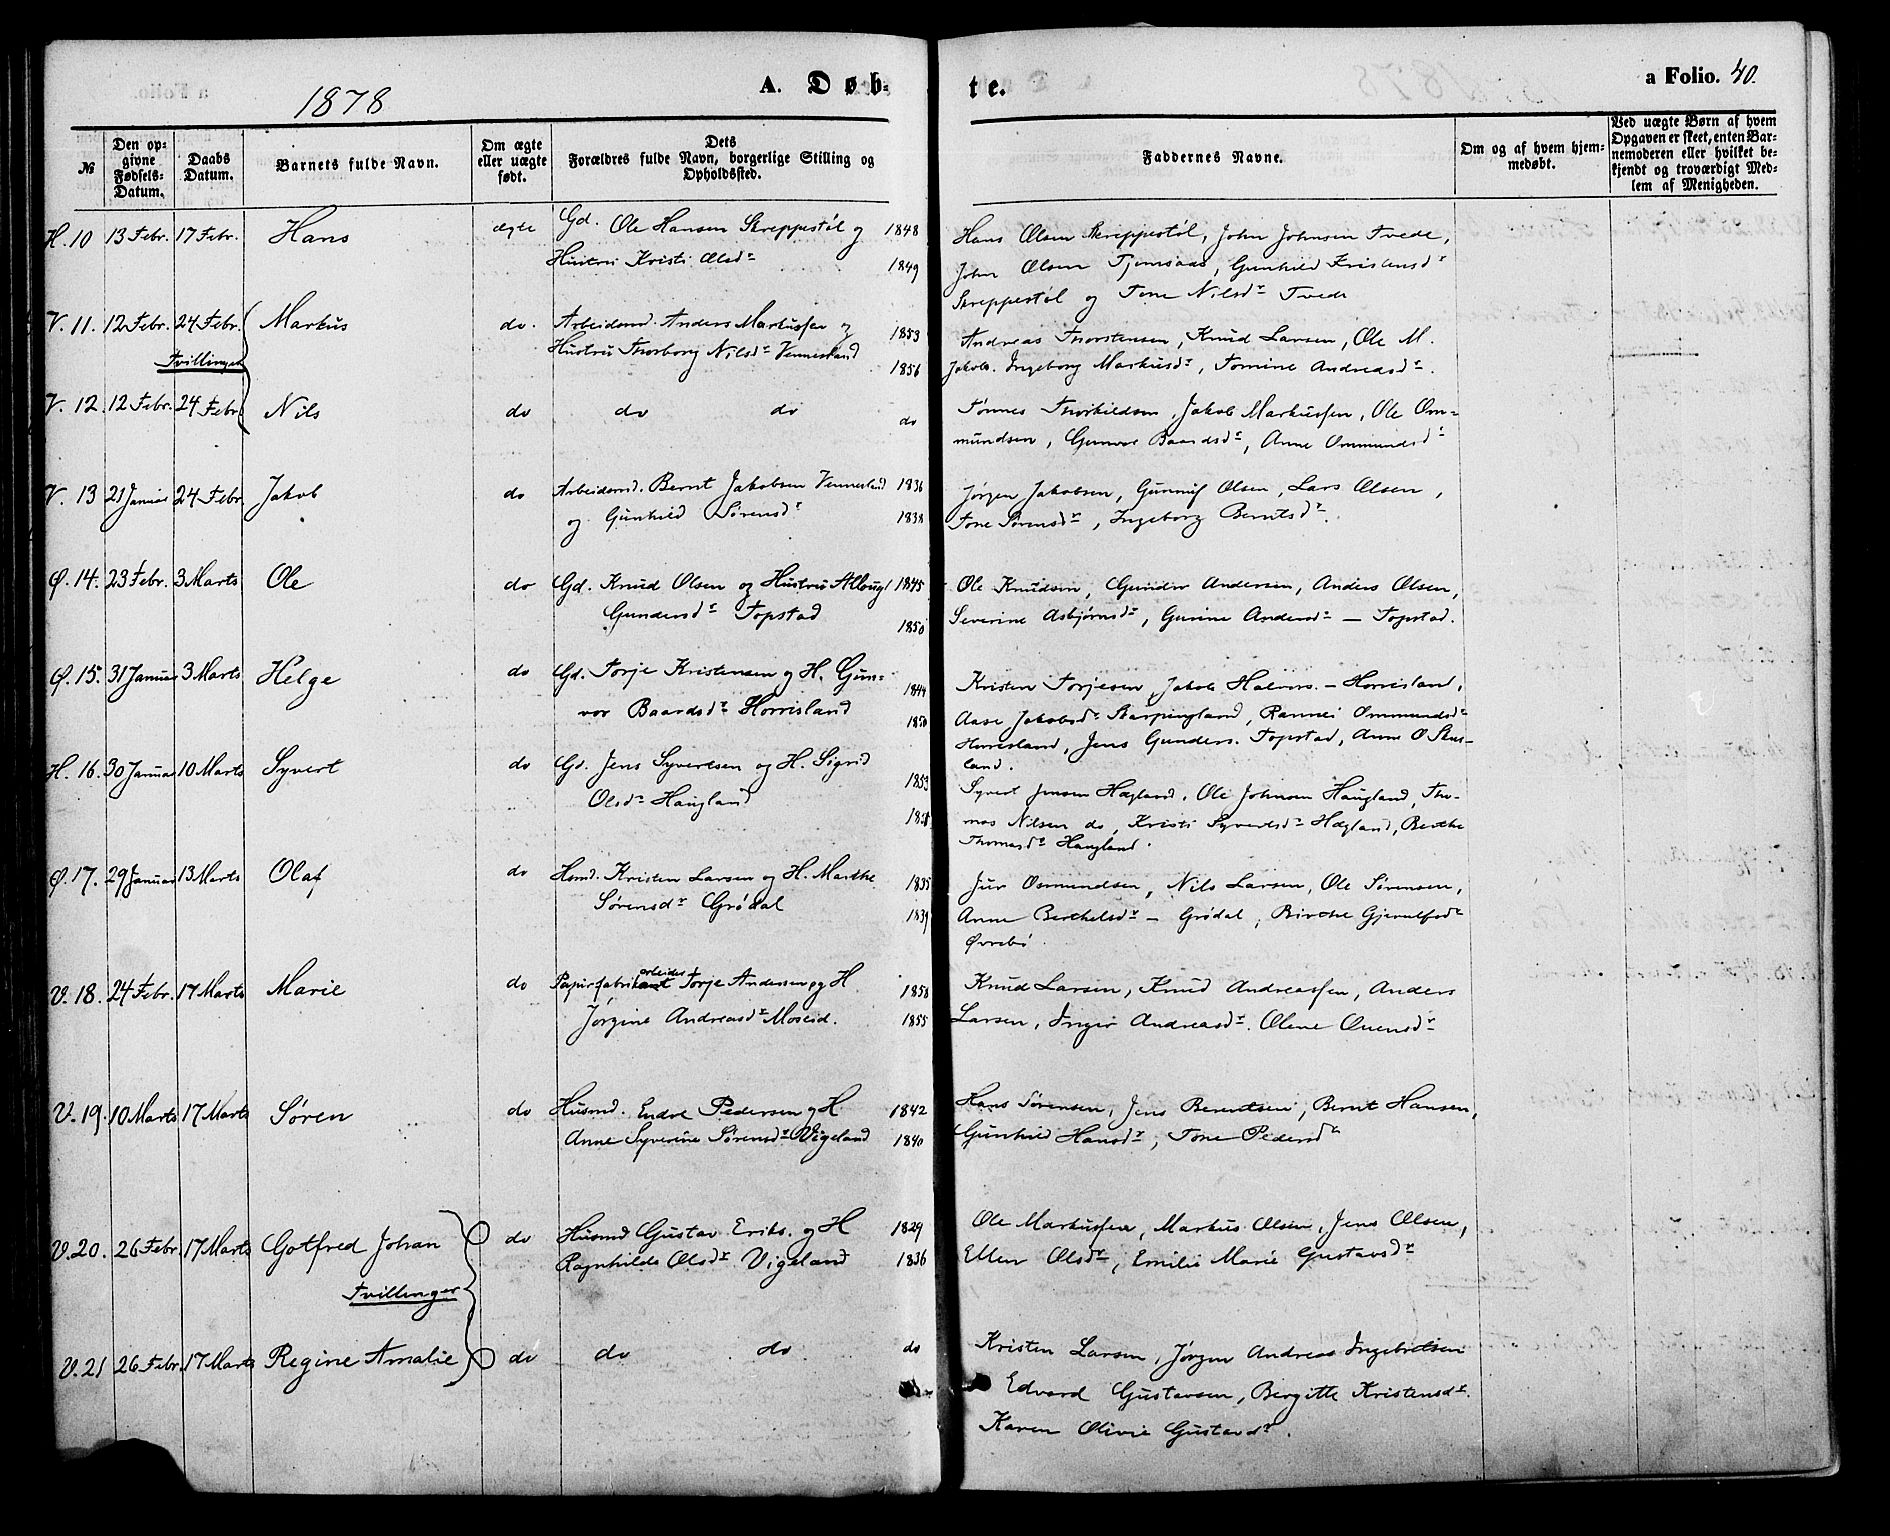 1878
A. Døb-
te.
a Folio. 40.
№
Den op-
givne
Fødsels-
Datum.
Daabs
Datum.
Barnets fulde Navn.
Om ægte
eller uægte
født.
Dets
Forældres fulde Navn, borgerlige Stilling og
Opholdssted.
Faddernes Navne.
Om og af hvem hjem-
medøbt.
Ved uægte Børn af hvem
Opgaven er skeet, enten Bar-
nemoderen eller hvilket be-
kjendt og troværdigt Med-
lem af Menigheden.
H. 10 13 Febr. 17 Febr. Hans ægte Gd. Ole Hansen Skreppestøl og 1848
Hustru Kristi Olsdr 1849
Hans Olsen Skreppestøl, John Johnsen Tvede,
John Olsen Tjomsaas, Gunhild Kristensdr
Skreppestøl og Tone Nilsdr Tvede
V. 11. 12 Febr. 24 Febr. Markus do. Arbeidsmd. Anders Markussen og 1853
Tvillinger Hustru Thorborg Nilsdr Vennesland 1856
Andreas Thorstensen, Knud Larsen, Ole M.
Jakobs. Ingeborg Markusdr, Tomine Andreasdr.
V. 12. 12 Febr. 24 Febr Nils do do do do
Tønnes Thorkildsen, Jakob Markussen, Ole Om-
mundsen, Gunvor Baardsdr, Anne Ommundsdr
V. 13 21 Januar 24 Febr Jakob do Arbeidsmd. Bernt Jakobsen Vennesland 1836
og Gunhild Sørensdr 1838
Jørgen Jakobsen, Gunnuf Olsen, Lars Olsen,
Tone Sørensdr, Ingeborg Berntsdr.
Ø. 14. 23 Febr. 3 Marts Ole do Gd. Knud Olsen og Hustru Allaug 1845
Gundersdr Topstad 1850
Ole Knudsen, Gunder Andersen, Anders Olsen,
Severine Asbjørnsdr, Gurine Andersdr — Topstad.
Ø. 15. 31 Januar 3 Marts Helge do Gd. Torje Kristensen og H. Gun- 1844
vor Baardsdr Horrisland 1850
Kristen Torjesen, Jakob Halvors. — Horrisland,
Aase Jakobsdr Skarpingland, Rannei Ommundsdr
Horrisland, Jens Gunders. Topstad, Anne O Skus-
land.
H. 16. 30 Januar 10 Marts Syvert do Gd. Jens Syvertsen og H. Sigrid 1853
Olsdr Haugland
Syvert Jensen Hægland, Ole Johnsen Haugland, Tho-
mas Nilsen do, Kristi Syvertsdr Hægland, Berthe
Thomasdr Haugland.
Ø. 17. 29 Januar 13 Marts Olaf do Hsmd. Kristen Larsen og H. Marthe 1835
Sørensdr Grødal 1839
Jur Osmundsen, Nils Larsen, Ole Sørensen,
Anne Berthelsdr — Grødal, Birthe Gjerulfsdr
Øvrebø.
V. 18. 24 Febr. 17 Marts Marie do Papirfabrikarbeider Torje Andersen og H 1858
Jørgine Andreasdr Moseid. 1855
Knud Larsen, Knud Andreassen, Anders
Larsen, Inger Andreasdr. Olene Ouensdr
V. 19. 10 Marts 17 Marts Søren do Husmd. Endre Pedersen og H. 1842
Anne Syverine Sørensdr Vigeland 1840
Hans Sørensen, Jens Berentsen, Bernt Hansen,
Gunhild Hansdr, Tone Pedersdr
V. 20. 26 Febr. 17 Marts Gotfred Johan do Husmd Gustav Eriks. og H 1829
Ragnhilde Olsdr Vigeland 1836
Tvillinger
Ole Markussen, Markus Olsen, Jens Olsen,
Ellen Olsdr, Emilie Marie Gustavsdr
V. 21 26 Febr. 17 Marts Regine Amalie do do do do
Kristen Larsen, Jørgen Andreas Ingebretsen
Edvard Gustavsen, Bergitte Kristensdr.
Karen Olivie Gustavsdr.